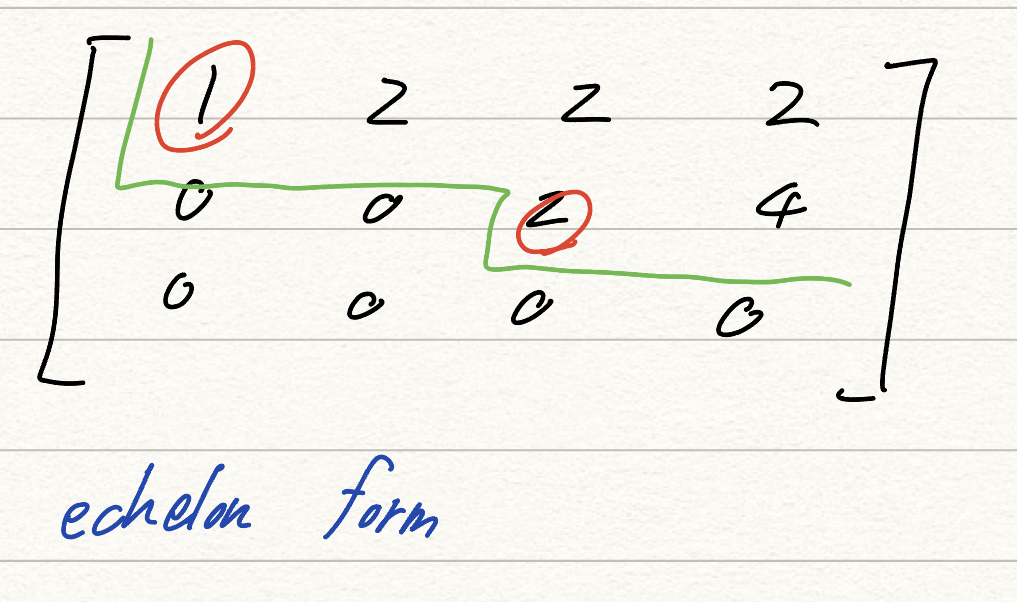 1 2 2 2
0 0 2 4
0 0 0 0
echelon form